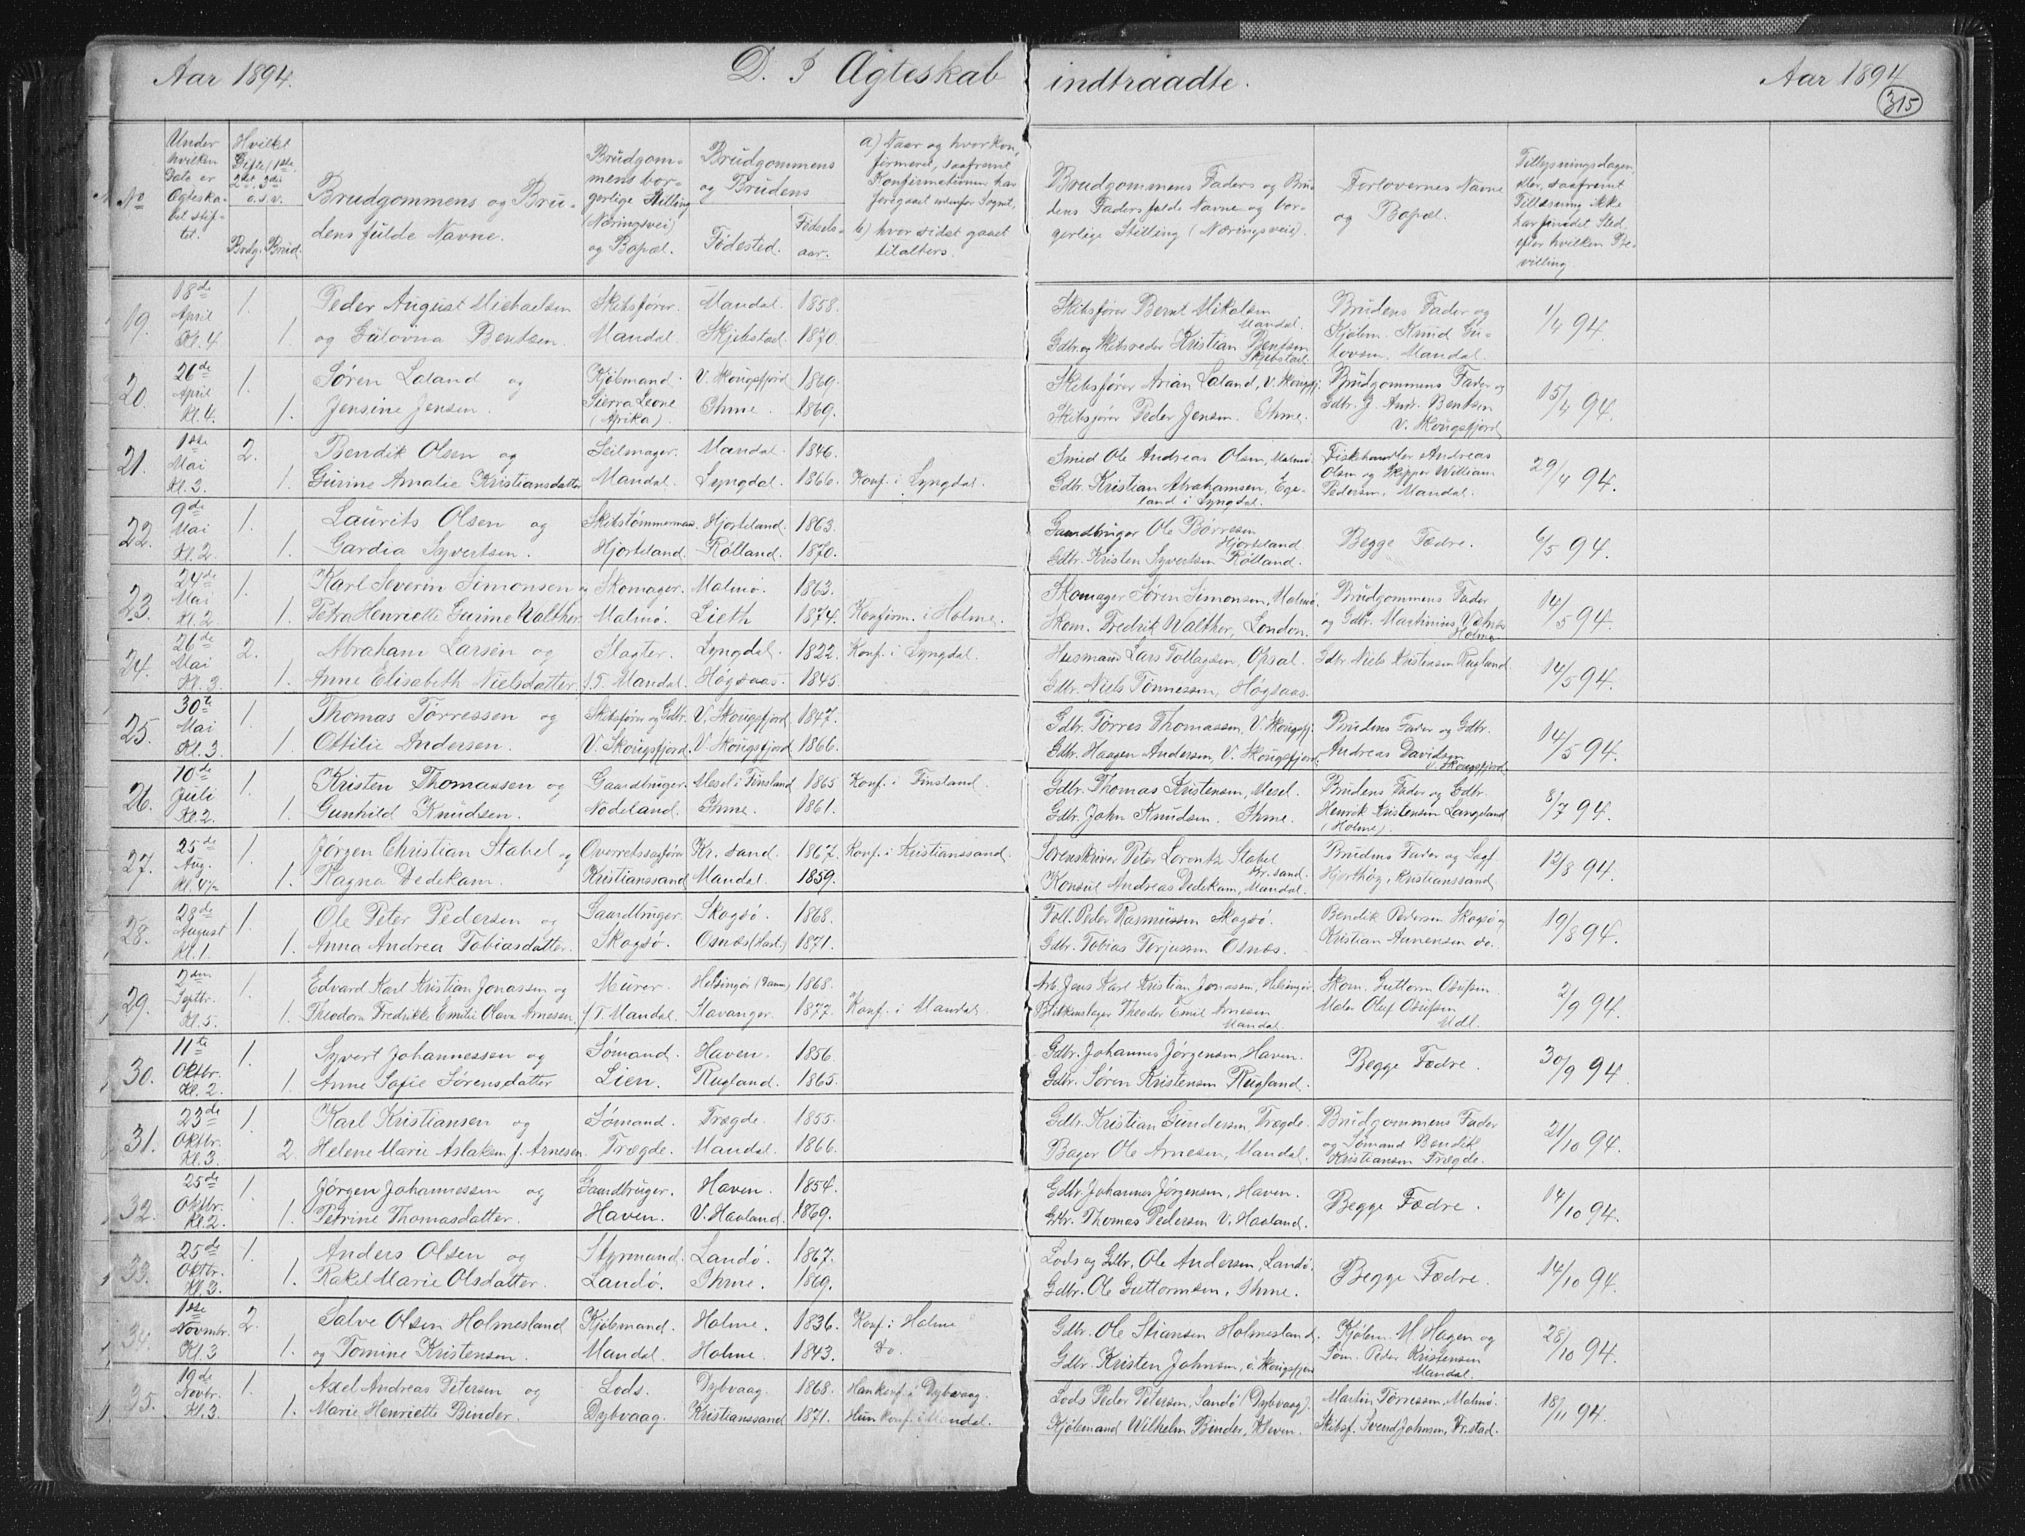 Aar 1894.
D. I Ægteskab indtraadte.
Aar 1894
315
No
Under hvilken Dato er Ægteskabet stiftet.
Hvilket Gifte/1ste, 2det, 3die o.s.v.
Brdg. Brud.
Brudgommens og Brudens fulde Navne.
Brudgommens borgerlige Stilling (Næringsvei) og Bopæl.
Brudgommens og Brudens
Fødested.
Fødselsaar.
a) Naar og hvor konfirmeret, saafremt Konfirmationen har foregaaet udenfor Sognet,
b) hvor sidst gaaet til alters.
Brudgommens Faders og Brudens Faders fulde Navne og borgerlige Stilling (Næringsvei).
Forlovernes Navne og Bopæl.
Tillysningsdagen, eller, saafremt Tillysning ikke har fundet Sted, efter hvilken Bevilling
19. 18de April Kl. 4. 1. Peder August Michaelsen Skibsfører. Mandal. 1858.
1. og Gulovna Bentsen. Mandal. Skjebstad. 1870.
Skibsfører Bernt Mikalsen Mandal. Brudens Fader og 1/4 94.
Gdbr. og Skibsreder Kristian Bentsen Skjebstad. Kjøbm. Knud Gulovsen. Mandal.
20. 26de April Kl. 4. 1. Søren Laland og Kjøbmand. V. Skougsfjord 1869.
1. Jensine Jensen. Sierra Leone (Afrika). Ihme. 1869.
Skibsfører Arian Laland, V. Skougsfj. Brudgommens Fader og 15/4 94.
Skibsfører Peder Jensen. Ihme. Gdbr. J. Andr. Bentsen V. Skougsfjord
21. 1ste Mai Kl. 3. 2. Bendik Olsen og Seilmager. Mandal. 1846.
1. Gurine Amalie Kristiansdatter Mandal. Lyngdal. 1866. Konf. i Lyngdal.
Smed Ole Andreas Olsen, Malmø. Fiskehandler Andreas Olsen og Skipper William Pedersen, Mandal. 29/4 94.
Gdbr. Kristian Abrahamsen, Egeland i Lyngdal.
22. 9de Mai Kl. 2. 1. Laurits Olsen og Skibstømmermand. Hjorteland. 1863.
1. Gardia Syvertsen. Hjorteland. Rølland. 1870.
Gaardbruger Ole Børresen Hjorteland. Begge Fædre. 6/5 94.
Gdbr. Kristen Syvertsen Rølland.
23. 24de Mai Kl. 2 1. Karl Severin Simonsen og Skomager. Malmø. 1863.
1. Petra Henriette Gurine Walther. Malmø. Lieth 1874. Konfirm. i Holme.
Skomager Søren Simonsen, Malmø. Brudgommens Fader 14/5 94.
Skom. Fredrik Walther, London. og Gdbr. Martinius Holme
24. 26de Mai Kl. 3. 2. Abraham Larsen og Slagter. Lyngdal. 1822. Konf. i Lyngdal.
1. Anne Elisabeth Nielsdatter. /T. Mandal. Høgsaas. 1845.
Husmand Lars Tollagsen, Opsal. Gdbr Niels Kristensen Rugland 14/5 94.
Gdbr. Niels Tønnessen, Høgsaas.
25. 30te Mai Kl. 3. 1. Thomas Tørressen og Skibsfører og Gdbr. V. Skougsfjord 1847.
1. Ottilie Andersen. V. Skougsfjord. V. Skougsfjord 1866.
Gdbr. Tørres Thomassen, V. Skougsfj. Brudens Fader og Gdbr. 14/5 94.
Gdbr. Haagen Andersen, V. Skougsfjord. Andreas Davidsen V. Skougsfjord.
26. 10de Juli Kl. 2. 1. Kristen Thomassen og Gaardbruger. Mesel i Finsland 1865 Konf. i Finsland.
1. Gunhild Knudsen. Nodeland. Ihme. 1861.
Gdbr. Thomas Kristensen, Mesel. Brudens Fader og Gdbr. 8/7 94.
Gdbr. John Knudsen. Ihme. Henrik Kristensen Langeland (Holme).
27. 25de Aug. Kl. 4½ 1. Jørgen Christian Stabel og Overretssagfører Kr.sand. 1867. Konf. i Kristianssand.
1. Ragna Dedekam. Kristianssand Mandal. 1859.
Sorenskriver Peter Lorentz Stabel Kr.sand. Brudens Fader og Sagf. 12/8 94.
Konsul Andreas Dedekam, Mandal. Hjorthøg, Kristianssand
28. 28de August Kl. 1. 1. Ole Peter Pedersen og Gaardbruger. Skogsø. 1868.
1. Anna Andrea Tobiasdatter. Skogsø. Osnæs (Hart.) 1871.
Foll. Peder Rasmussen Skogsø. Bendik Pedersen Skogsø og 19/8 94.
Gdbr. Tobias Terjusen Osnæs. Kristian Aanensen do.
29. 2den Septbr. Kl. 5. 1. Edvard Karl Kristian Jonassen og Murer. Helsingør (Danm) 1868.
1. Theodora Fredrikke Emilie Olava Arnesen. /T. Mandal. Stavanger. 1877. Konf. i Mandal.
Arb. Jens Karl Kristian Jonassen, Helsingør. Skom. Guttorm Osufsen. 2/9 94.
Blikkenslager Theodor Emil Arnesen Mandal. Maler Oluf Osufsen Mdl.
30. 11te Oktbr. Kl. 2. 1. Syvert Johannessen og Sømand. Haven. 1856.
1. Anne Sofie Sørensdatter Lien. Rugland. 1865.
Gdbr. Johannes Jørgensen, Haven. Begge Fædre. 30/9 94.
Gdbr. Søren Kristensen Rugland.
31. 23de Oktbr. Kl. 3. 1. Karl Kristiansen og Sømand. Trægde. 1855.
2. Helene Marie Aslaksen f. Arnesen. Trægde. Mandal. 1866.
Gdbr. Kristian Gundersen, Trægde. Brudgommens Fader 21/10 94.
Bager Ole Arnesen, Mandal. og Sømand Bendik Kristiansen Trægde.
32. 25de Oktbr. Kl. 2. 1. Jørgen Johannessen og Gaardbruger. Haven. 1854.
1. Petrine Thomasdatter. Haven. V. Haaland. 1869.
Gdbr. Johannes Jørgensen, Haven. Begge Fædre. 14/10 94.
Gdbr. Thomas Pedersen V. Haaland.
33. 25de Oktbr. Kl. 3. 1. Anders Olsen og Styrmand. Landø. 1867.
1. Rakel Marie Olsdatter. Landø. Ihme. 1869.
Lods og Gdbr. Ole Andersen, Landø. Begge Fædre. 14/10 94.
Gdbr. Ole Guttormsen, Ihme.
34. 1ste Novmbr. Kl. 3 2. Salve Olsen Holmesland Kjøbmand. Holme. 1836. Konf. i Holme
1. og Tomine Kristensen. Mandal. Holme. 1843. do.
Gdbr. Ole Stiansen Holmesland. Kjøbm. M. Hagen og 28/10 94.
Gdbr. Kristen Johnsen, ø. Skougsfjord Søm. Peder Kristensen Mandal.
35. 19de Novbr. Kl. 3. 1. Axel Andreas Petersen og Lods. Dybvaag. 1868. Han konf. i Dybvaag.
1. Marie Henriette Binder. Dybvaag. Kristianssand 1871. Hun konf. i Mandal.
Lods Peder Petersen, Sandø (Dybvaag). Martin Tørressen, Malmø. 18/11 94.
Kjøbmand Wilhelm Binder, Kleven. Skibsf. Svend Johnsen, Fr.stad.